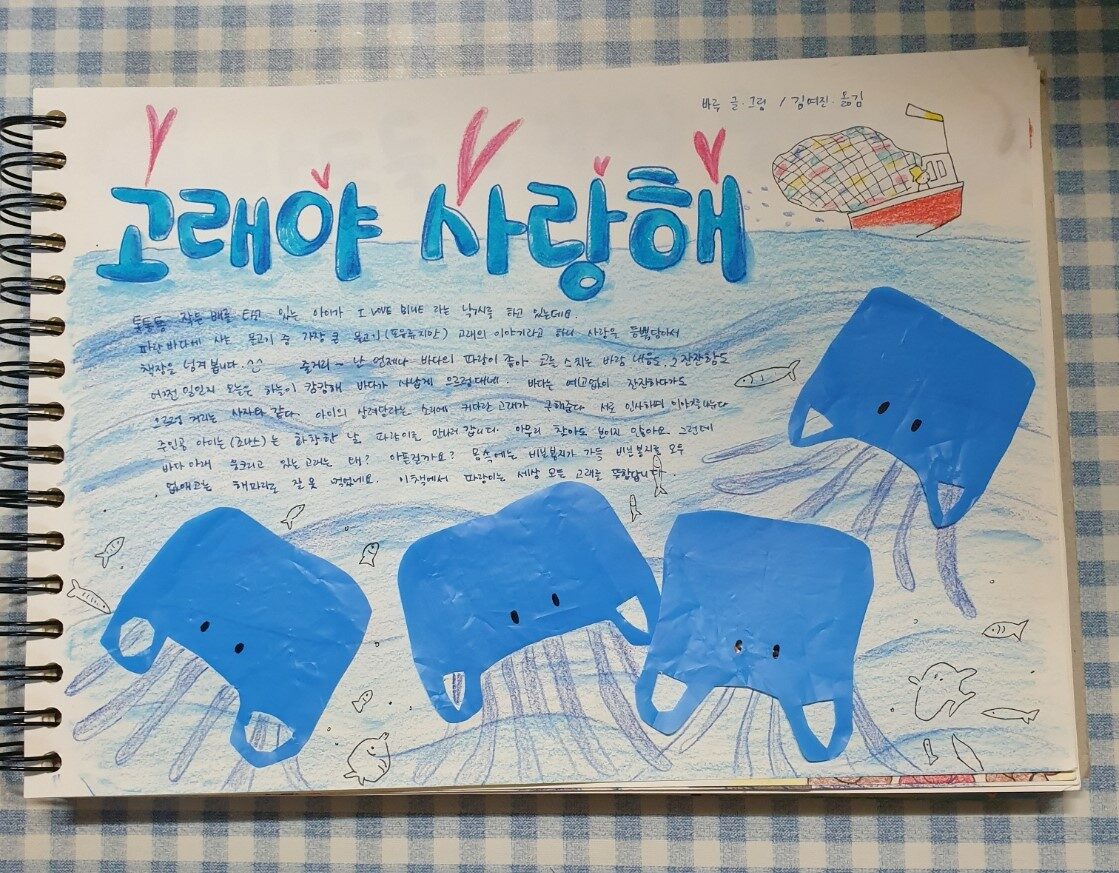 바루 글·그림 / 김여진·옮김
고래야 사랑해
통통통 작은 배를 타고 있는 아이가 I LOVE BLUE 라는 낚시를 하고 있는데요.
파란 바다에 사는 물고기 중 가장 큰 물고기(포유류지만) 고래의 이야기라고 하니 사랑을 듬뿍담아서
책장을 넘겨 봅니다.^^ 줄거리~ 난 언제나 바다의 파랑이 좋아 코를 스치는 바람 내음도, 그 잔잔함도
어쩐 일인지 오늘은 하늘이 캄캄해 바다가 사납게 으르렁대네. 바다는 예고없이 잔잔하다가도
으르렁 거리는 사자와 같다. 아이의 살려달라는 소리에 커다란 고래가 구해준다 서로 인사하며 이야기를나눈다
주인공 아이는(조나스)는 화창한 날 파랑이를 만나러 갑니다. 아무리 찾아도 보이지 않아요. 그런데
바다 아래 웅크리고 있는 고래는 왜? 아픈걸까요? 몸속에는 비닐봉지가 가득 비닐봉지를 모두
없애고는 해파리로 잘못 먹었네요. 이책에서 파랑이는 세상 모든 고래를 뜻합니다.